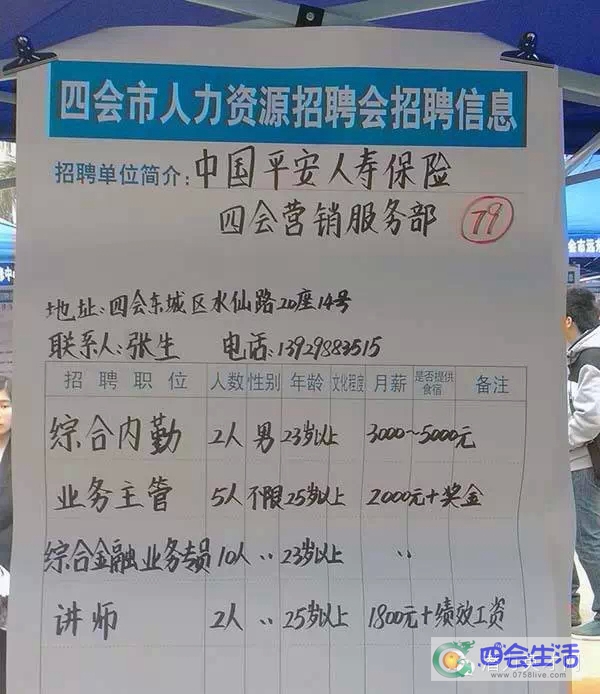 四会市人力资源招聘会招聘信息
招聘单位简介:中国平安人寿保险
四会营销服务部 79
地址:四会东城区水仙路20座14号
联系人:张生 电话:13929883515
招聘职位 人数 性别 年龄 文化程度 月薪 是否提供食宿 备注
综合内勤 2人 男 23岁以上 3000~5000元
业务主管 5人 不限 25岁以上 2000元+奖金
综合金融业务专员 10人 〃 23岁以上 〃
讲师 2人 〃 25岁以上 1800元+绩效工资
四会生活
www.0758live.com